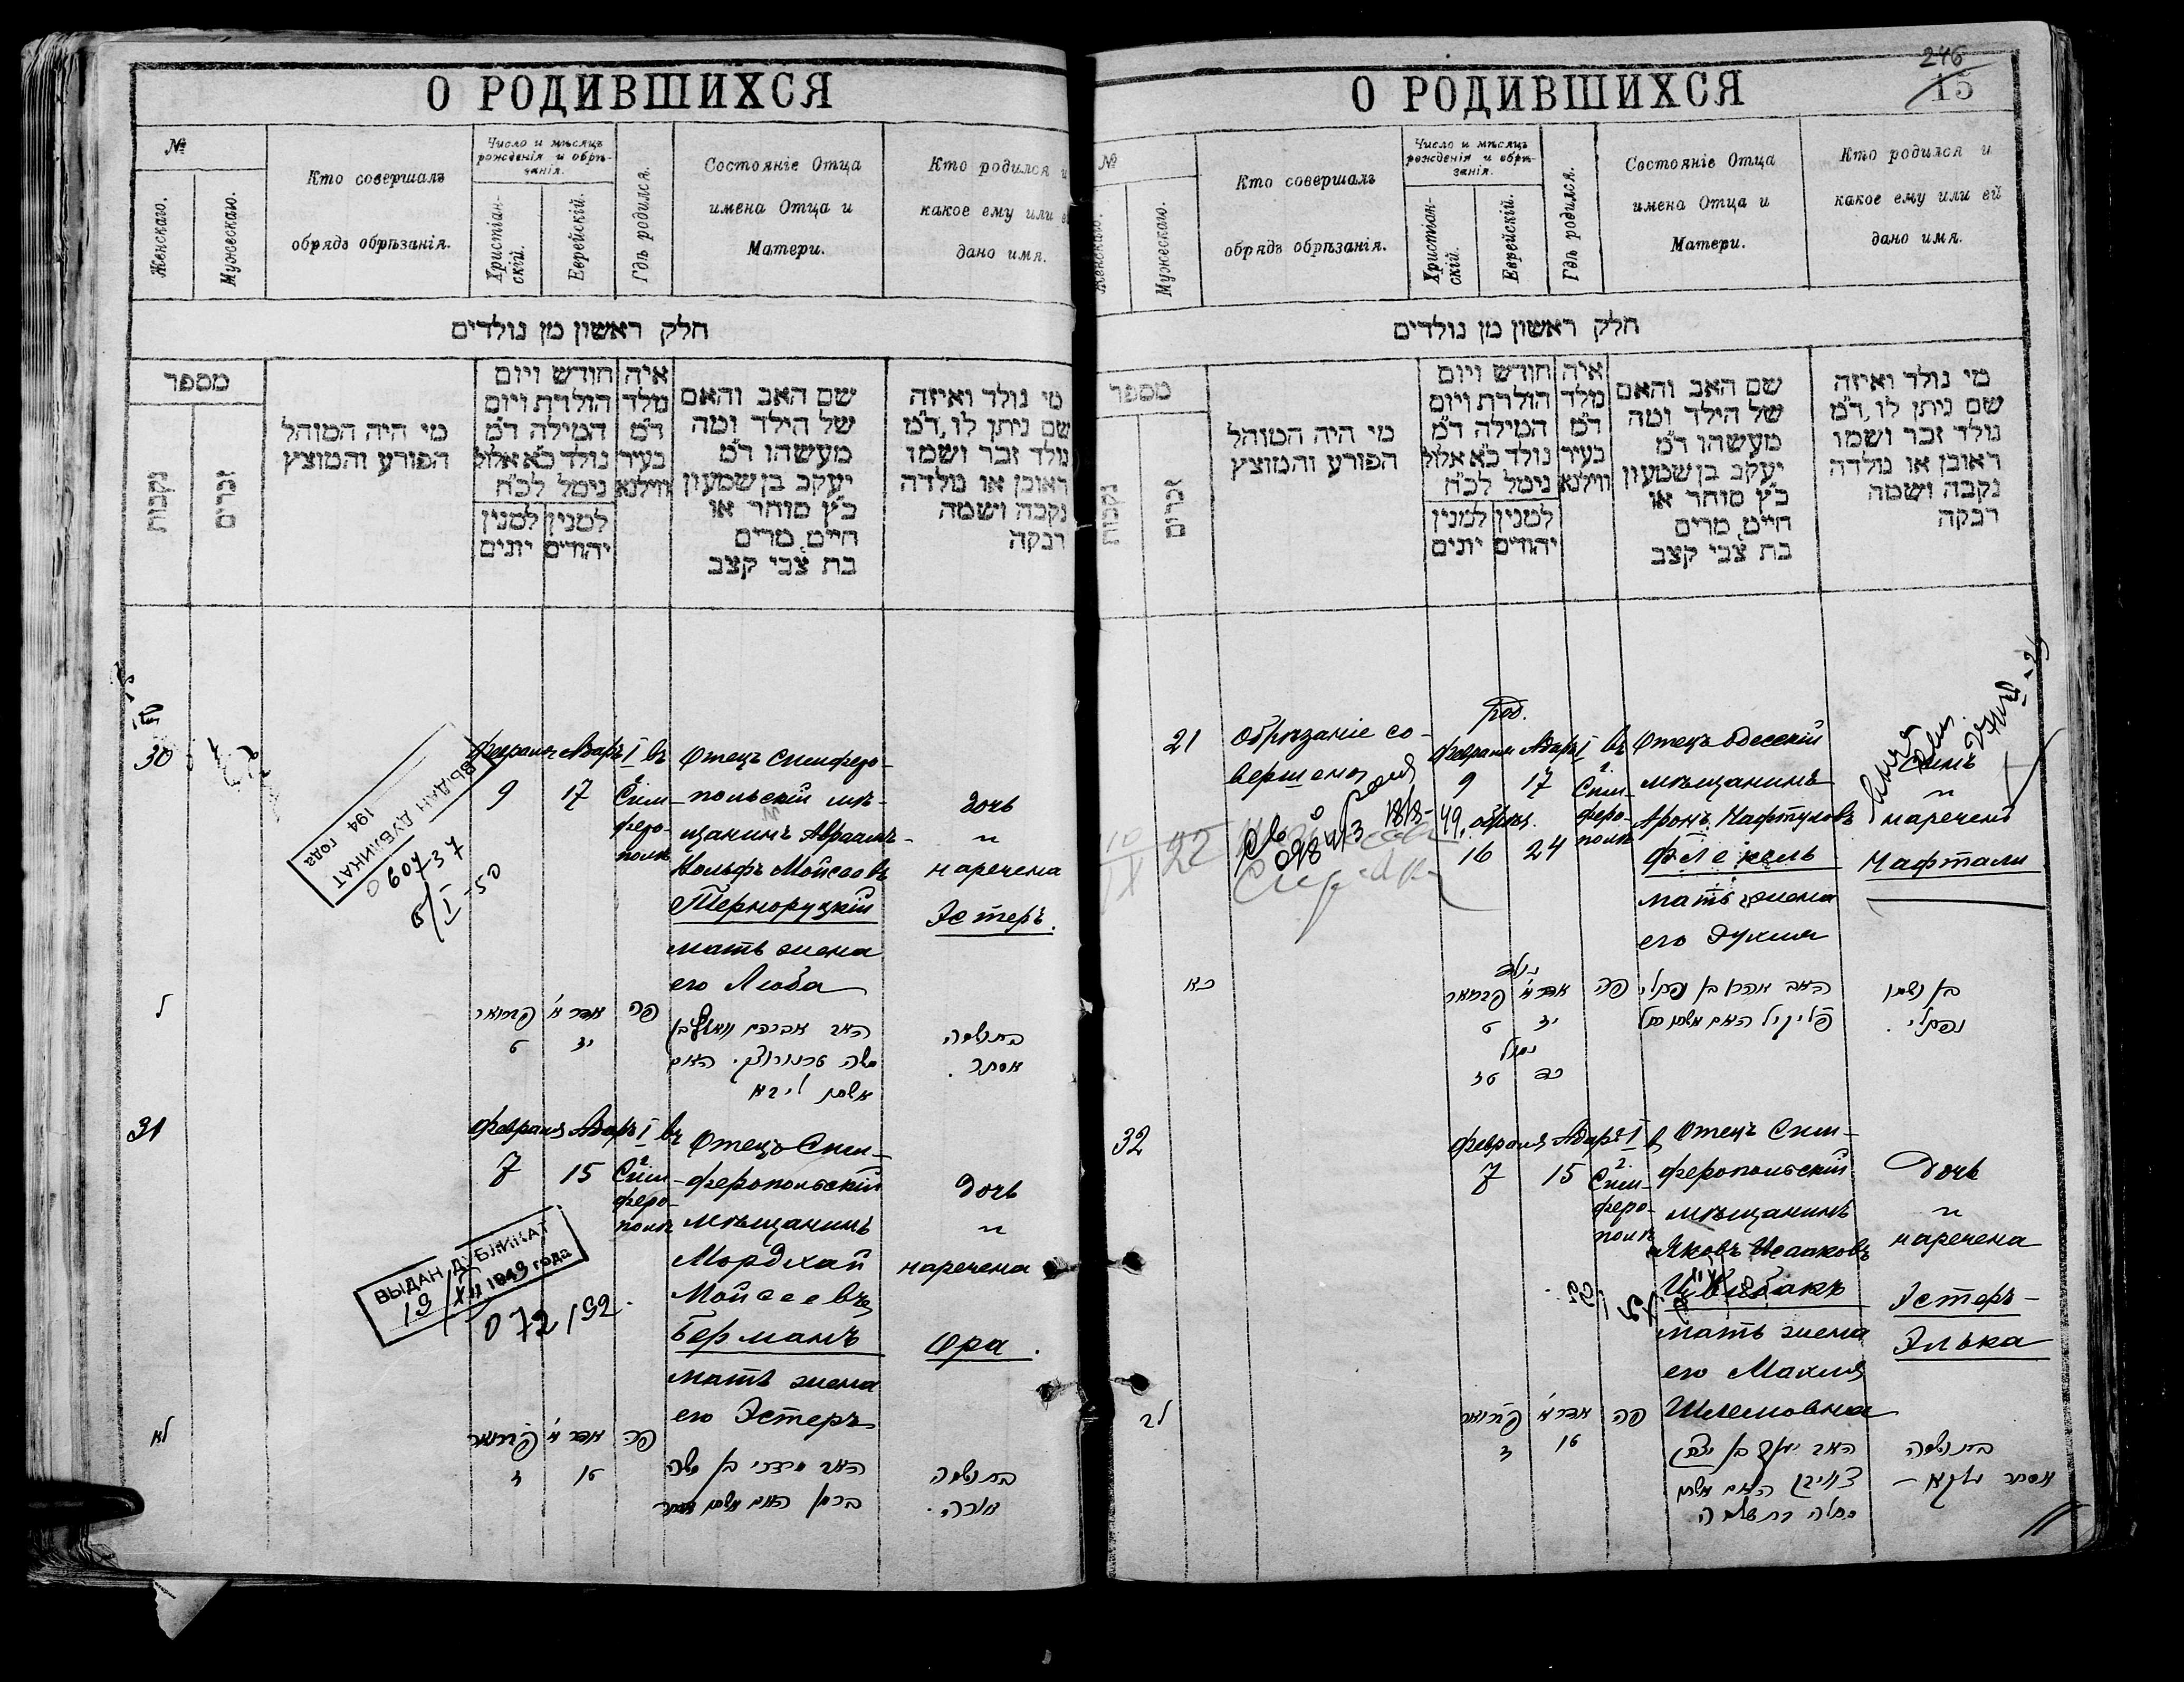 О РОДИВШИХСЯ
№
Женскаго.
Мужескаго.
Кто совершалъ
обрядъ обрѣзанія.
Число и мѣсяцъ
рожденія и обрѣ-
занія.
Христіан-
скій.
Еврейскій.
Гдѣ родился.
Состояніе Отца
имена Отца и
Матери.
Кто родился и
какое ему или
дано имя.
חלק ראשון מן נולדים
מספר
נקבות
זכרים
מי היה המוהל
הפורע והמוצץ
חודש ויום
הולדת ויום
המילה ד״מ
נולד כ״א אלול
נימל לכ״ח
למנין למנין
יהודים יונים
איה
מלד
ד״מ
בעיר
ווילנא
שם האב והאם
של הילד ומה
מעשהו ד״מ
יעקב בן שמעון
כ״ץ סוחר או
חייט, מרים
בת צבי קצב
מי נולד ואיזה
שם ניתן לו, ד״מ
נולד זכר ושמו
ראובן או נולדה
נקבה ושמה
רבקה
30
Февраля Адаръ I въ
9 17 Сим-
феро-
полѣ
Отецъ Симферо-
польскій мѣ-
щанинъ Авраамъ-
Вольфъ Мойсеевъ
Терноруцкій
мать жена
его Люба
дочь
наречена
Эстеръ.
ВЫДАН ДУБЛИКАТ
194 года
60737
6/I-50
ל
פברואר אדר א פה
ט יז
האב אברהם וואלף בן
משה טרנורוצקי. האם
אשתו ליבא
בת ושמה
אסתר.
31
Февраля Адаръ I въ
7 15 Сим-
феро-
полѣ
Отецъ Сим-
феропольскій
мѣщанинъ
Мордхай
Мойсеевъ
Берманъ
мать жена
его Эстеръ
дочь
наречена
Ора.
ВЫДАН ДУБЛИКАТ
19/XII 1949 года
072192
לא
פברואר אדר א פה
ז טו
האב מרדכי בן משה
ברמן האם אשתו אסתר
בת ושמה
אורה.
О РОДИВШИХСЯ
246
15
№
Женскаго.
Мужескаго.
Кто совершалъ
обрядъ обрѣзанія.
Число и мѣсяцъ
рожденія и обрѣ-
занія.
Христіан-
скій.
Еврейскій.
Гдѣ родился.
Состояніе Отца
имена Отца и
Матери.
Кто родился и
какое ему или ей
дано имя.
חלק ראשון מן נולדים
מספר
נקבות
זכרים
מי היה המוהל
הפורע והמוצץ
חודש ויום
הולדת ויום
המילה ד״מ
נולד כ״א אלול
נימל לכ״ח
למנין למנין
יהודים יונים
איה
מלד
ד״מ
בעיר
ווילנא
שם האב והאם
של הילד ומה
מעשהו ד״מ
יעקב בן שמעון
כ״ץ סוחר או
חייט, מרים
בת צבי קצב
מי נולד ואיזה
שם ניתן לו, ד״מ
נולד זכר ושמו
ראובן או נולדה
נקבה ושמה
רבקה
21
Обрѣзаніе со-
вершено
род.
Февраля Адаръ I въ
9 17 Сим-
феро-
полѣ
обрѣз.
16 24
Отецъ одесскій
мѣщанинъ
Аронъ Нафтуловъ
Флекель
мать жена
его Рухля
сынъ
нареченъ
Нафтали
כא
נולד
פברואר אדר א פה
ט יז
נמול
טז כד
האב אהרן בן נפתלי
פליקיל האם אשתו רחל
בן ושמו
נפתלי.
32
Февраля Адаръ I в
7 15 Сим-
феро-
полѣ
Отецъ Сим-
феропольскій
мѣщанинъ
Яковъ Исааковъ
Цвибакъ
мать жена
его Махля
Шлемовна
дочь
наречена
Эстеръ-
Элька
לב
פברואר אדר א פה
ז טו
האב יעקב בן יצחק
צוויבק האם אשתו
מחלה בת שלמה
בת ושמה
אסתר עלקא